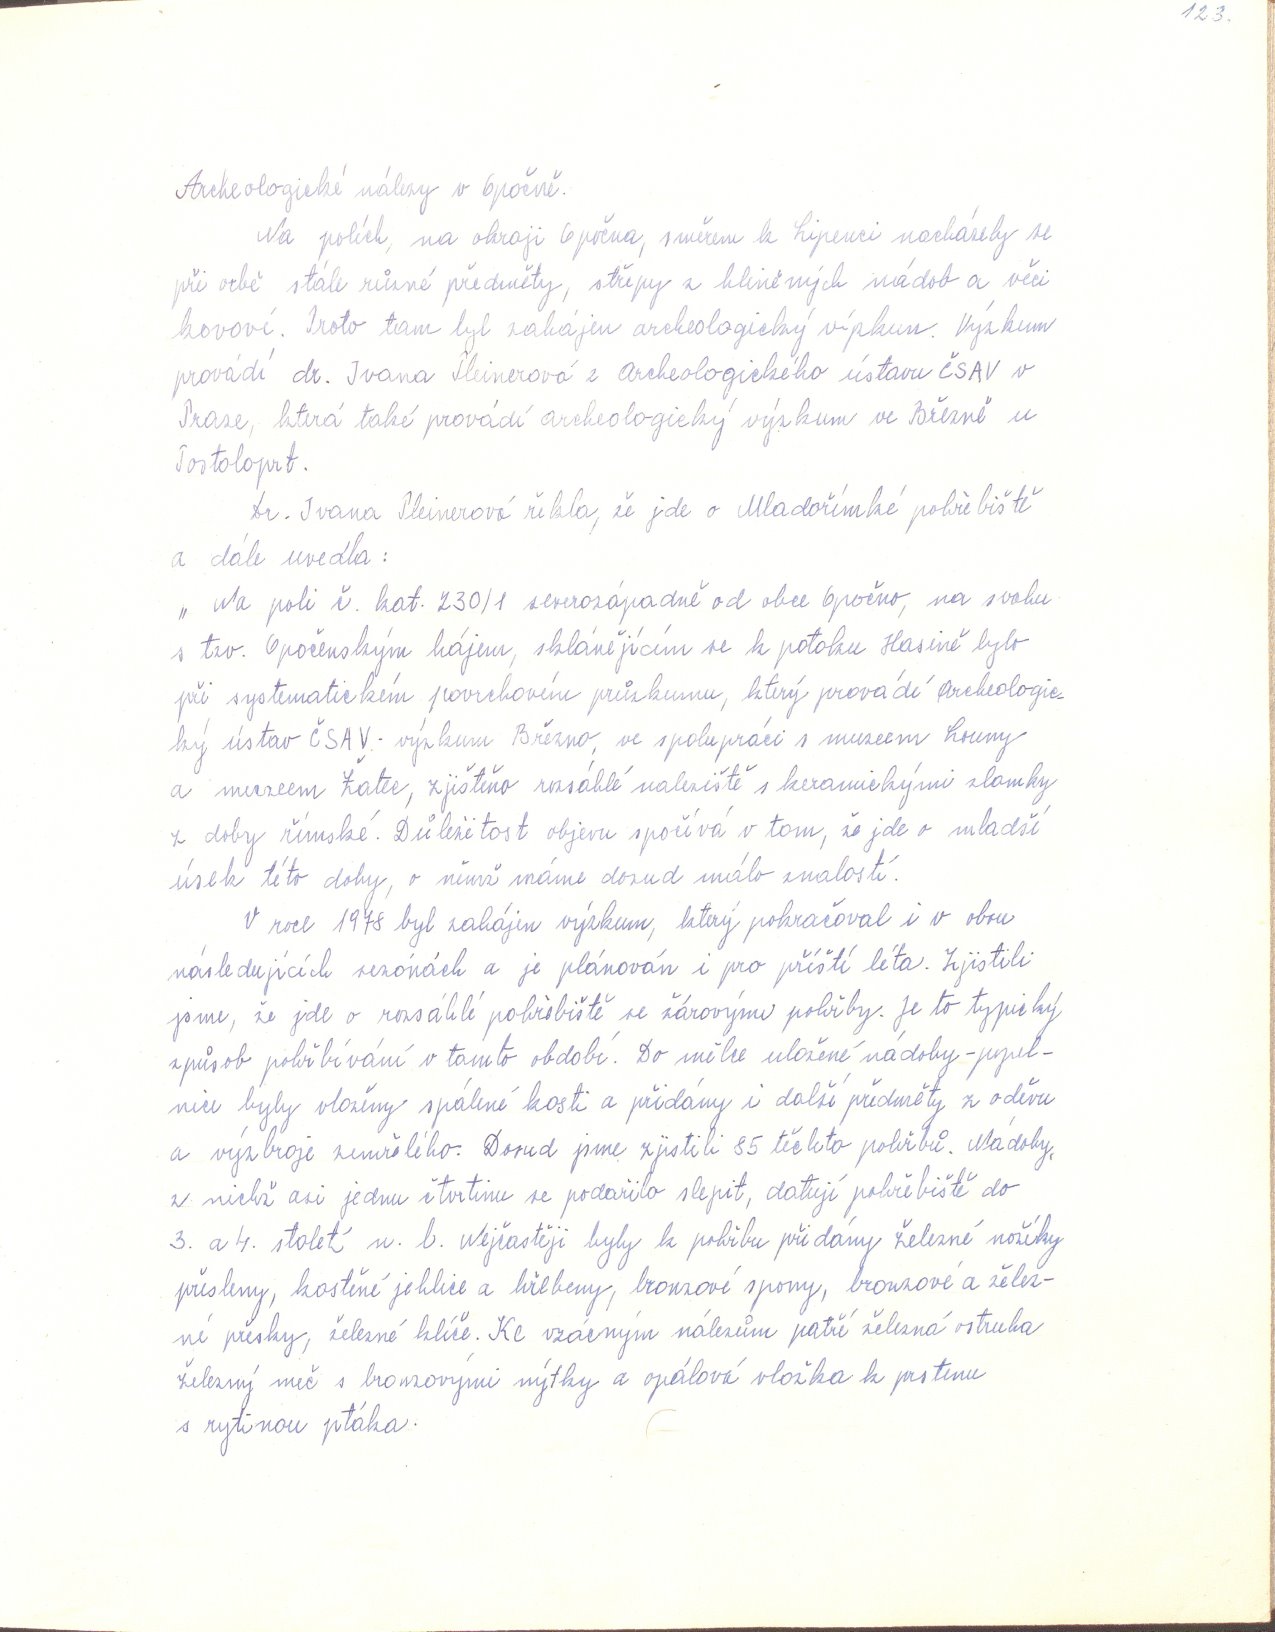 123.
Archeologické nálezy v Opočně.
Na polích, na okraji Opočna, směrem k Lipenci nacházely se
při orbě stále různé předměty, střepy z hliněných nádob a věci
kovoví. Proto tam byl zahájen archeologický výzkum. Výzkum
provádí dr. Ivana Pleinerová z Archeologického ústavu ČSAV v
Praze, která také provádí archeologický výzkum ve Březně u
Postoloprt.
Dr. Ivana Pleinerová řekla, že jde o Mladořímké pohřebiště
a dále uvedla:
„ Na poli č. kat. 230/1 severozápadně od obce Opočno, na svahu
s tzv. Opočenským hájem, sklánějícím se k potoku Hasině bylo
při systematickém povrchovém průzkumu, který provádí Archeologic-
ký ústav ČSAV - výzkum Březno, ve spolupráci s muzeem Louny
a muzeem Žatec, zjištěno rozsáhlé naleziště s keramickými zlomky
z doby římské. Důležitost objevu spočívá v tom, že jde o mladší
úsek této doby, o němž máme dosud málo znalostí.
V roce 1978 byl zahájen výzkum, který pokračoval i v obou
následujících sezónách a je plánován i pro příští léta. Zjistili
jsme, že jde o rozsáhlé pohřebiště se žárovými pohřby. Je to typický
způsob pohřbívání v tomto období. Do mělce uložené nádoby - popel-
nice byly vloženy spálené kosti a přidány i další předměty z oděvu
a výzbroje zemřelého. Dosud jsme zjistili 85 těchto pohřbů. Nádoby,
z nichž asi jednu čtvrtinu se podařilo slepit, datují pohřebiště do
3. a 4. století n. l. Nejčastěji byly k pohřbu přidány železné nožíky
přesleny, kostěné jehlice a hřebeny, bronzové spony, bronzové a želez-
né přesky, železné klíče. Ke vzácným nálezům patří železná ostruha
železný meč s bronzovými nýtky a opálová vložka k prstenu
s rytinou ptáka.